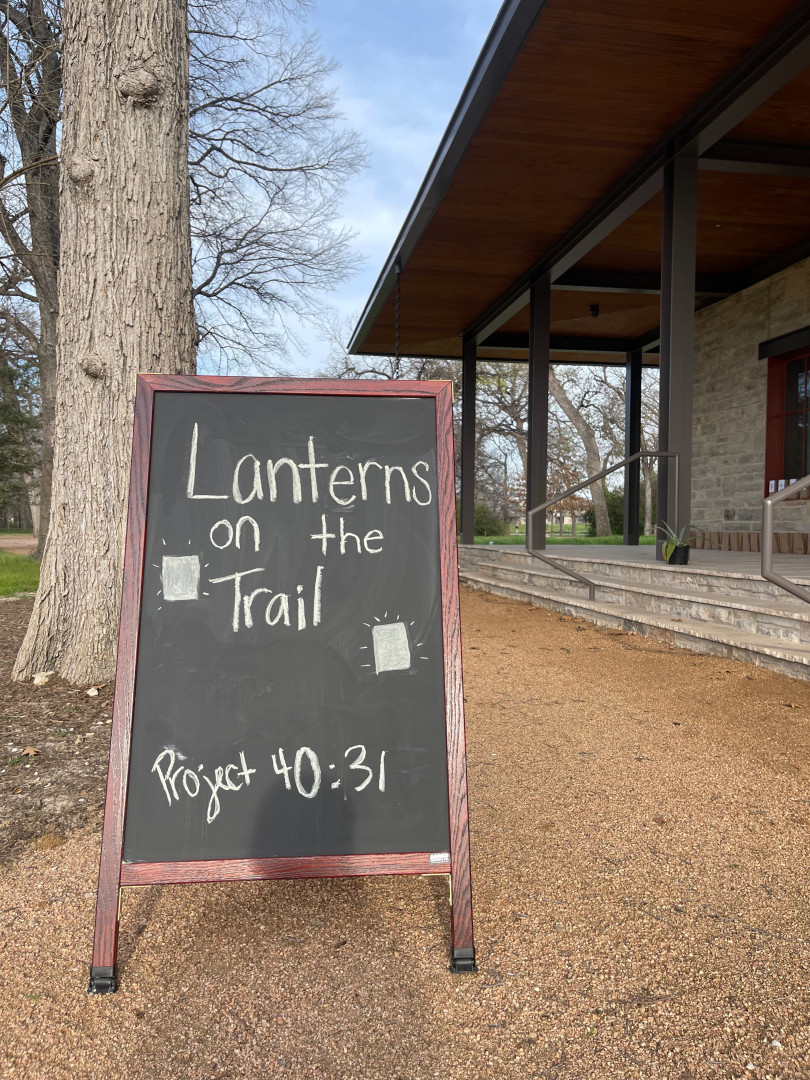 Lanterns
on the
Trail
Project 40:31